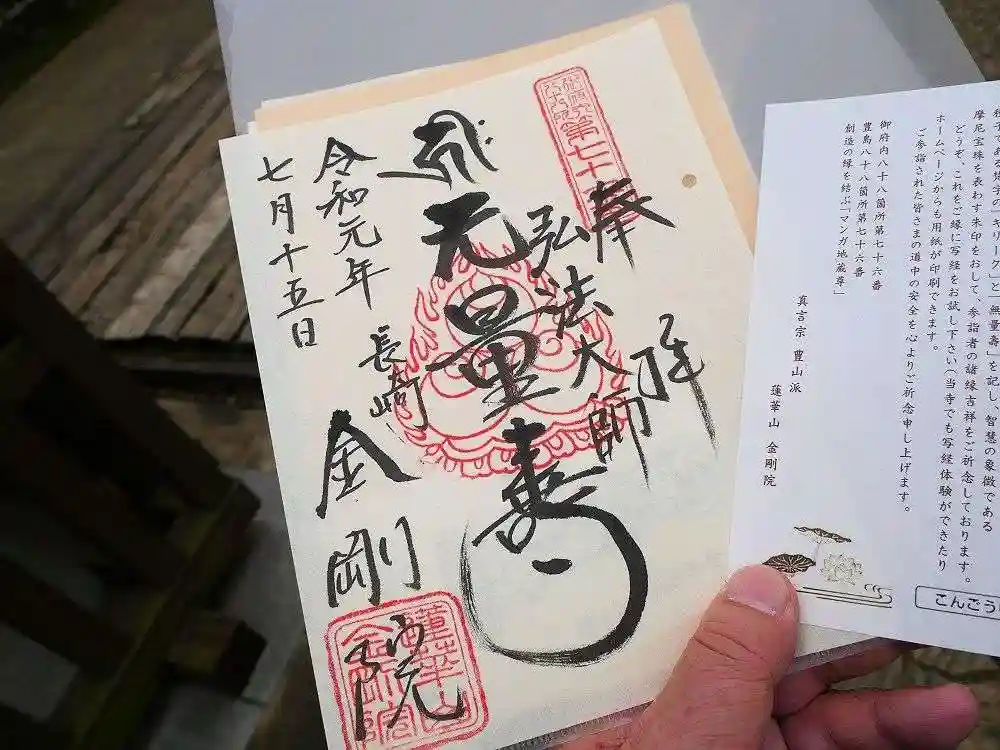 奉拝
弘法大師
无量寿
令和元年
七月十五日
長崎
金剛院
第七十
蓮華山
金剛院
梵字の「キリーク」と「無量壽」を記し、智慧の象徴である
摩尼宝珠を表わす朱印をおして、参詣者の諸縁吉祥をご祈念しております。
どうぞ、これをご縁に写経をお試し下さい(当寺でも写経体験ができたり
ホームページからも用紙が印刷できます。
ご参詣された皆さまの道中の安全を心よりご祈念申し上げます。
御府内八十八箇所第七十六番
豊島八十八箇所第七十六番
創造の縁を結ぶ「マンガ地蔵尊」
真言宗 豊山派
蓮華山 金剛院
こんごう